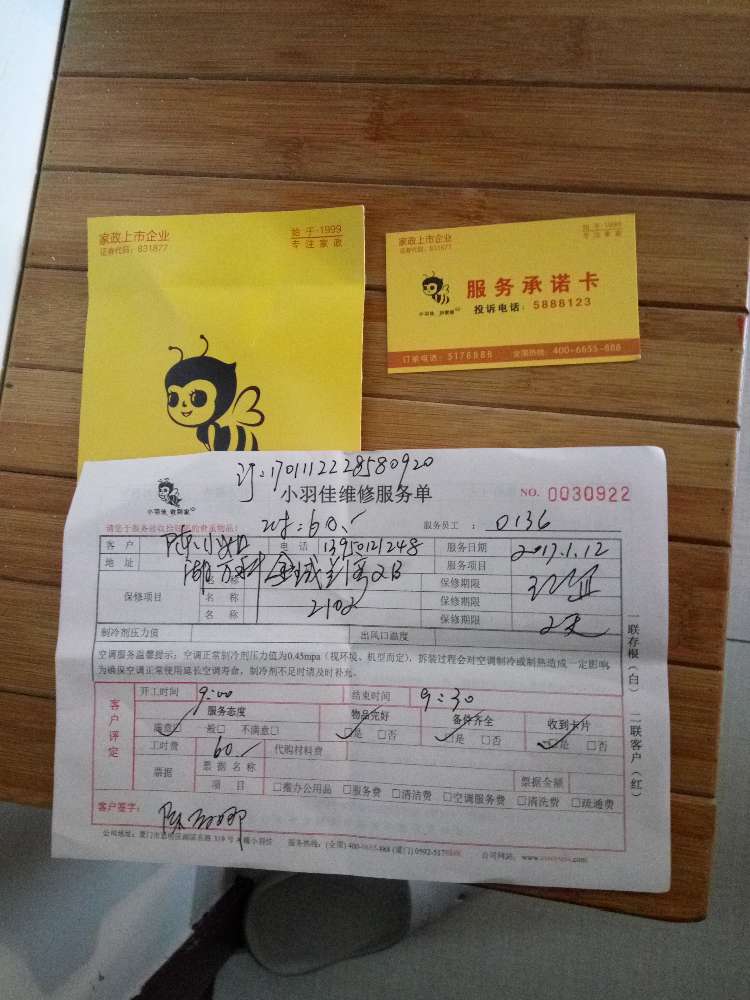 家政上市企业
证券代码：831877
始于·1999
专注家政
家政上市企业
证券代码：831877
始于·1999
专注家政
服务承诺卡
投诉电话：5888123
小羽佳 到你家
订单电话：5176888 全国热线：400-6655-888
订：1701112228580920
小羽佳维修服务单
NO. 0030922
小羽佳 到你家
请您于服务前收捡好您的贵重物品！
时：60.
服务员工：0136
客户 陈小姐 电话 13950121248 服务日期 2017.1.12
地址 服务项目
保修项目 名称 保修期限
名称 2102 保修期限
名称 保修期限
制冷剂压力值 出风口温度
空调服务温馨提示：空调正常制冷剂压力值为0.45mpa（视环境、机型而定），拆装过程会对空调制冷或制热造成一定影响，
为确保空调正常使用延长空调寿命，制冷剂不足时请及时补充。
一联存根（白） 二联客户（红）
客户评定
开工时间 9:00 结束时间 9:30
服务态度 物品完好 备件齐全 收到卡片
满意□ 一般□ 不满意□ □是 □否 □是 □否 □是 □否
工时费 60. 代购材料费
票据 票据名称 票据金额
项目 □推办公用品 □服务费 □清洁费 □空调服务费 □清洗费 □疏通费
客户签字：
服务热线：(全国) 400-6655-888 (厦门) 0592-5176888
公司网站：